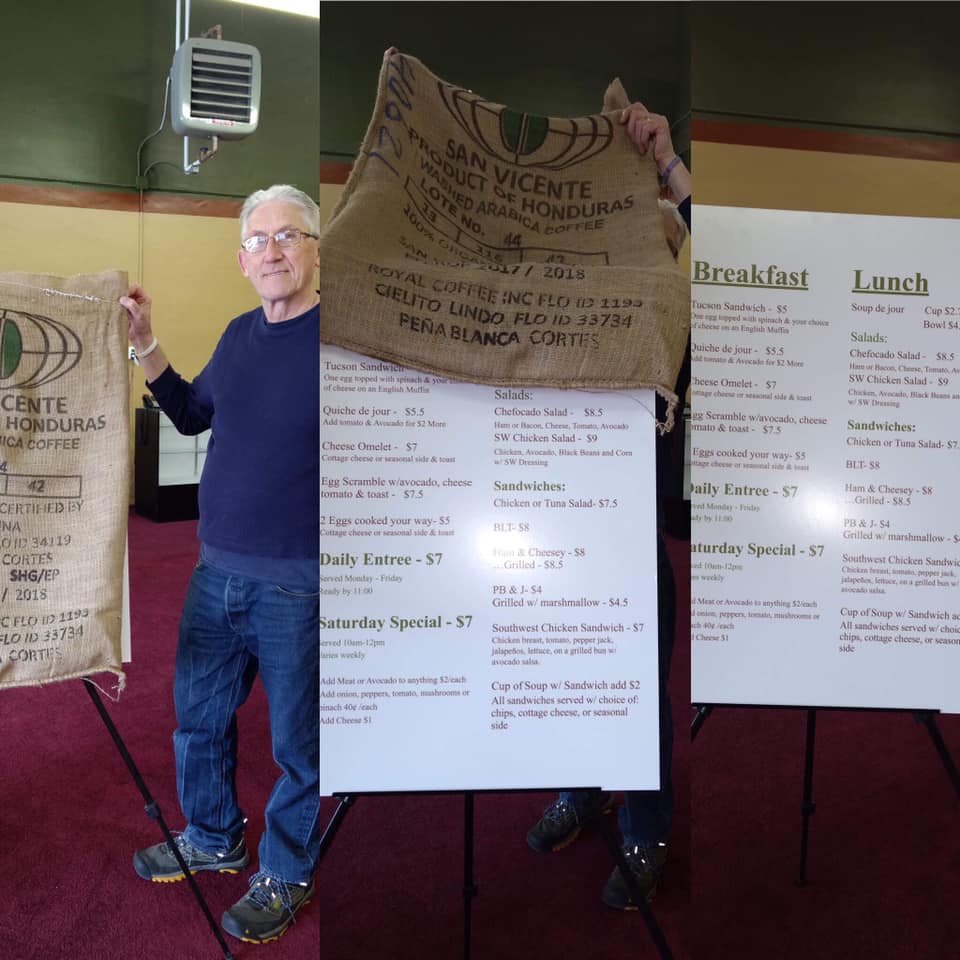 CENTE
HONDURAS
BICA COFFEE
4
42
CERTIFIED BY
NA
O ID 34119
CORTES
SHG/EP
/ 2018
NC FLO ID 1193
FLO ID 33734
A CORTES
SAN VICENTE
PRODUCT OF HONDURAS
WASHED ARABICA COFFEE
LOTE NO.
13 115 44 42
100% ORGA
2017/ 2018
ROYAL COFFEE INC FLO ID 1193
CIELITO LINDO FLO ID 33734
PEÑA BLANCA CORTES
Tucson Sandwich
One egg topped with spinach & your
of cheese on an English Muffin
Quiche de jour - $5.5
Add tomato & Avocado for $2 More
Cheese Omelet - $7
Cottage cheese or seasonal side & toast
Egg Scramble w/avocado, cheese
tomato & toast - $7.5
2 Eggs cooked your way- $5
Cottage cheese or seasonal side & toast
Daily Entree - $7
Served Monday - Friday
Ready by 11:00
Saturday Special - $7
erved 10am-12pm
aries weekly
Add Meat or Avocado to anything $2/each
Add onion, peppers, tomato, mushrooms or
pinach 40¢ /each
Add Cheese $1
Salads:
Chefocado Salad - $8.5
Ham or Bacon, Cheese, Tomato, Avocado
SW Chicken Salad - $9
Chicken, Avocado, Black Beans and Corn
w/ SW Dressing
Sandwiches:
Chicken or Tuna Salad- $7.5
BLT- $8
Ham & Cheesey - $8
...Grilled - $8.5
PB & J- $4
Grilled w/ marshmallow - $4.5
Southwest Chicken Sandwich - $7
Chicken breast, tomato, pepper jack,
jalapeños, lettuce, on a grilled bun w/
avocado salsa.
Cup of Soup w/ Sandwich add $2
All sandwiches served w/ choice of:
chips, cottage cheese, or seasonal
side
Breakfast
Tucson Sandwich - $5
One egg topped with spinach & your choice
of cheese on an English Muffin
Quiche de jour - $5.5
Add tomato & Avocado for $2 More
Cheese Omelet - $7
ottage cheese or seasonal side & toast
gg Scramble w/avocado, cheese
omato & toast - $7.5
Eggs cooked your way- $5
ottage cheese or seasonal side & toast
Daily Entree - $7
rved Monday - Friday
ady by 11:00
aturday Special - $7
ed 10am-12pm
es weekly
d Meat or Avocado to anything $2/each
d onion, peppers, tomato, mushrooms or
ch 40¢ /each
d Cheese $1
Lunch
Soup de jour Cup $2.7
Bowl $4.
Salads:
Chefocado Salad - $8.5
Ham or Bacon, Cheese, Tomato, Av
SW Chicken Salad - $9
Chicken, Avocado, Black Beans an
w/ SW Dressing
Sandwiches:
Chicken or Tuna Salad- $7.
BLT- $8
Ham & Cheesey - $8
...Grilled - $8.5
PB & J- $4
Grilled w/ marshmallow - $4
Southwest Chicken Sandwic
Chicken breast, tomato, pepper jack,
jalapeños, lettuce, on a grilled bun w/
avocado salsa.
Cup of Soup w/ Sandwich ad
All sandwiches served w/ choic
chips, cottage cheese, or season
side